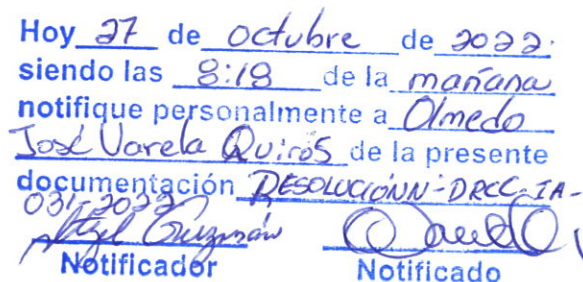 Hoy 27 de octubre de 2022.
siendo las 8:18 de la mañana
notifique personalmente a Olmedo
José Varela Quirós de la presente
documentación RESOLUCIÓNN-DRCC-IA-
031-2022
Guzmán
Notificador Notificado